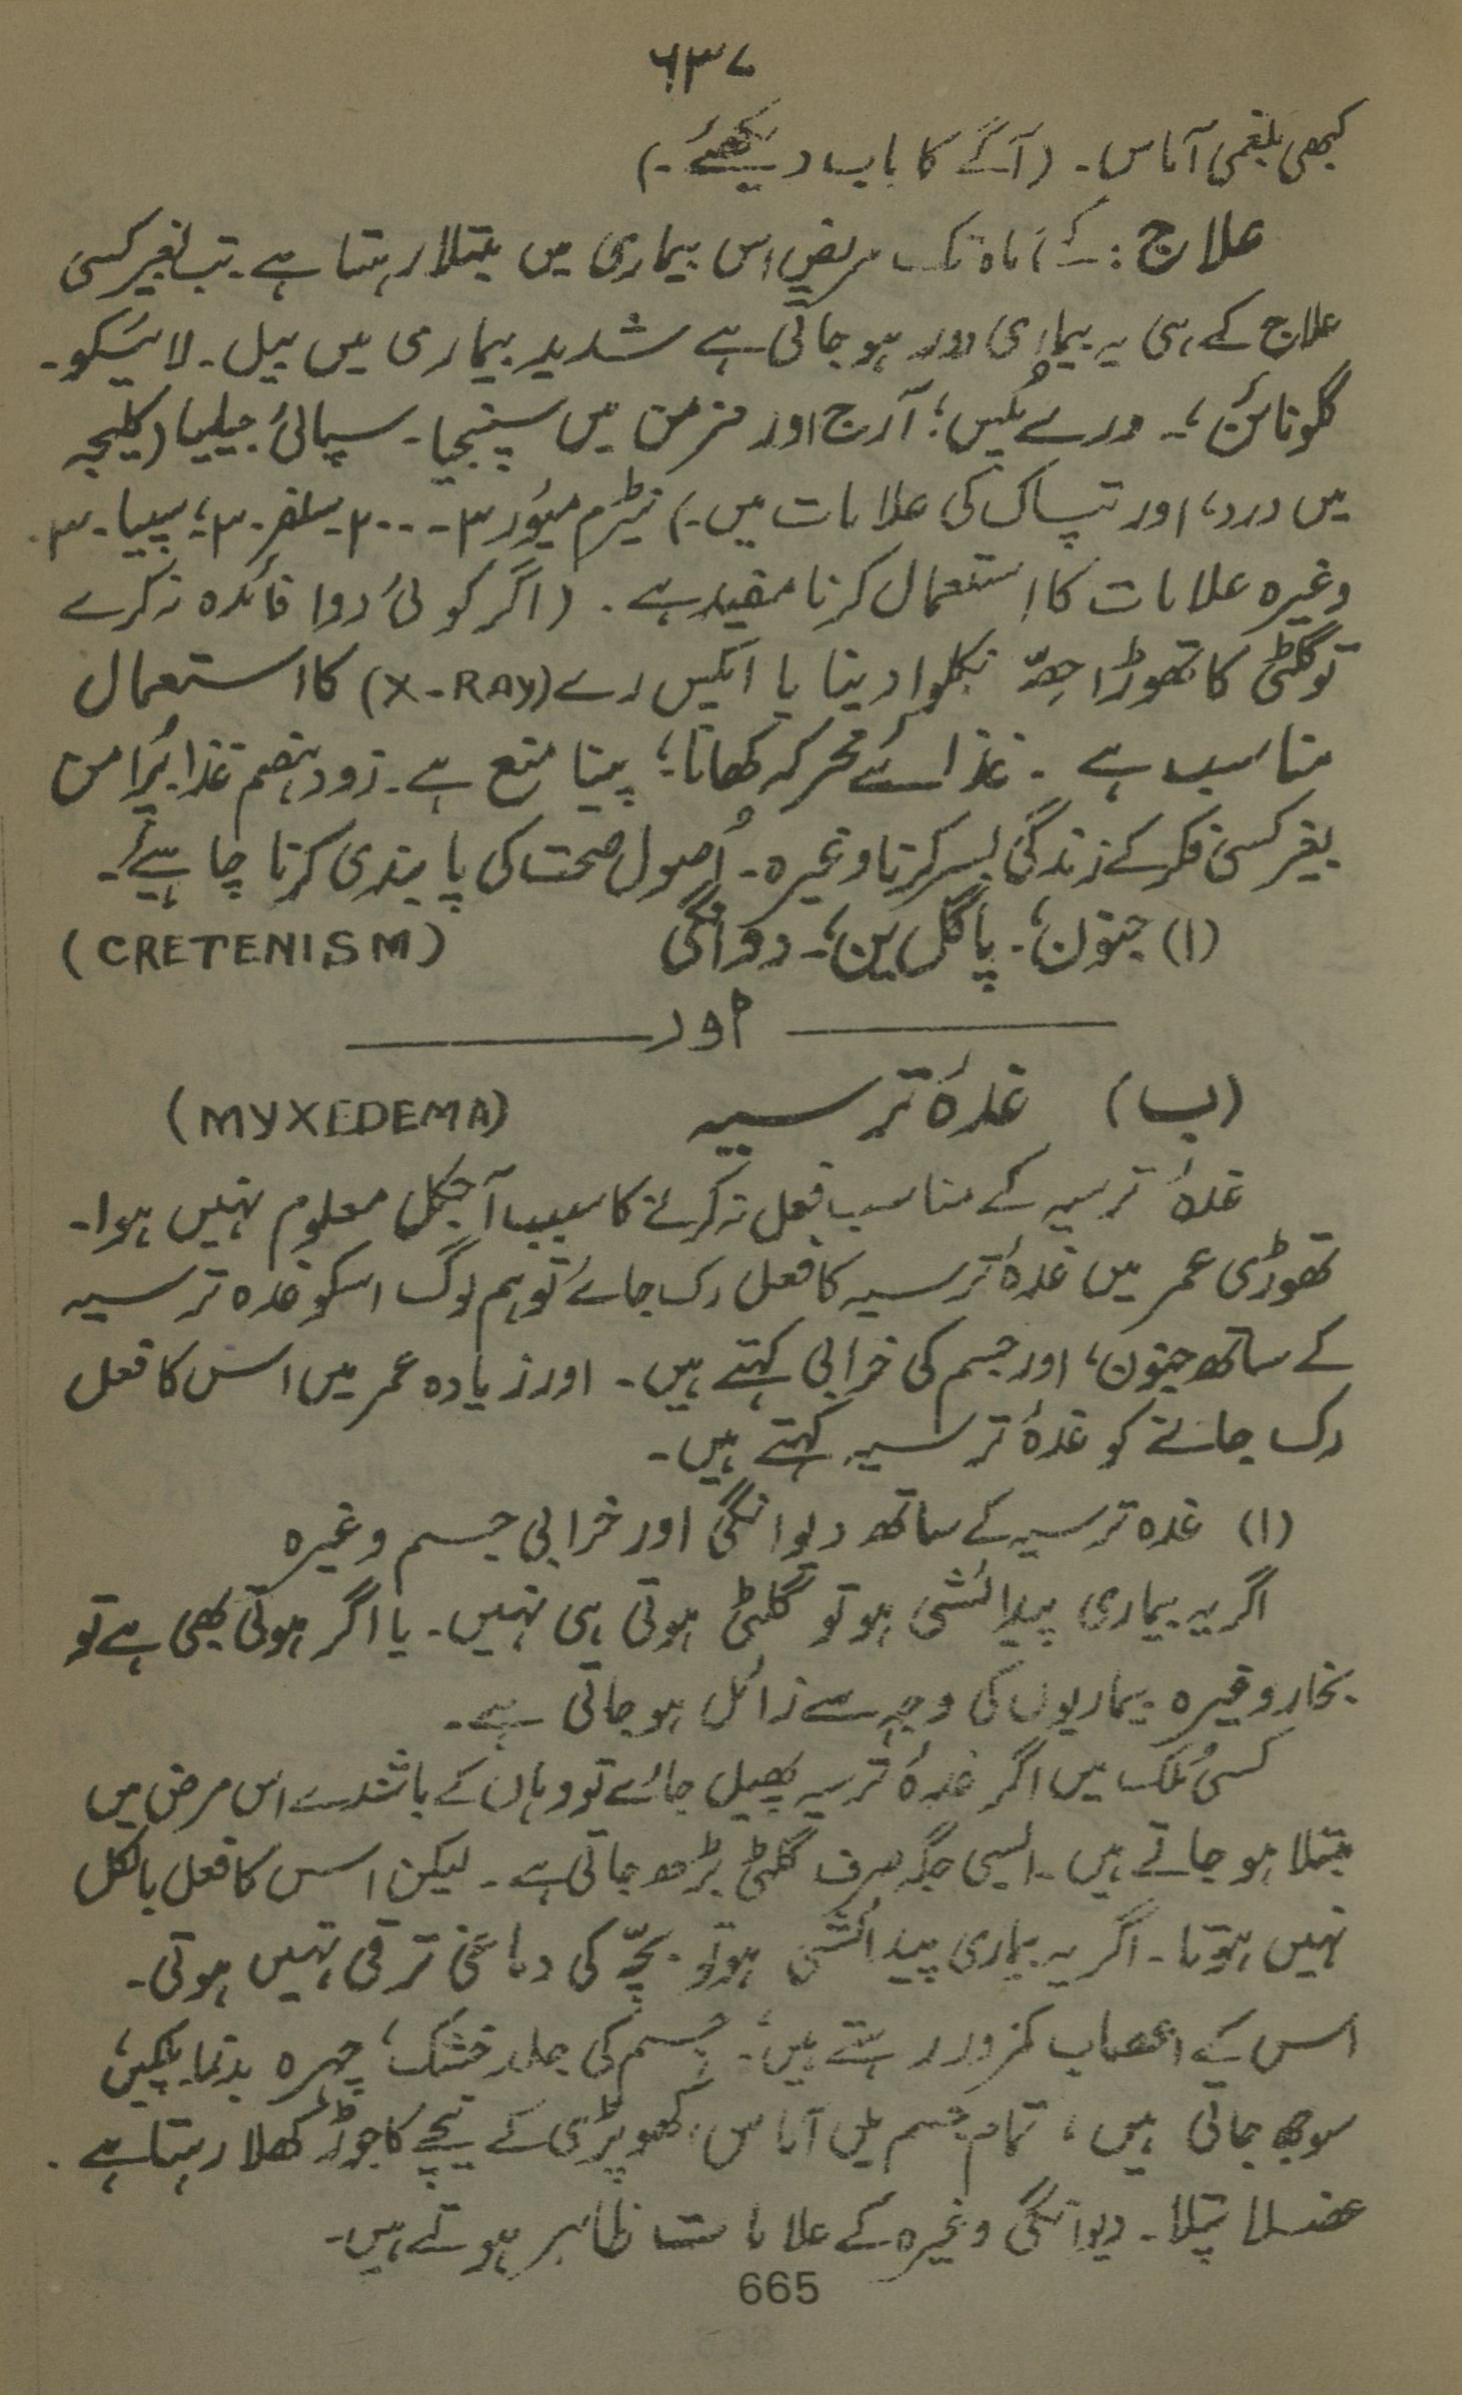 ۶۳۷
کبھی بلغمی آماس۔ (آگے کا باب دیکھئے۔)
علاج: کئے ماہ تک مریض اس بیماری میں مبتلا رہتا ہے۔ تب بغیر کسی
علاج کے ہی یہ بیماری دور ہو جاتی ہے شدید بیماری میں بیل۔ لائیکو۔
گلونائن؛۔ ورے ٹکیس؛ آرج اور مزمن میں سپنجیا۔ سپائی جیلیا (کلیجہ
میں درد، اور تپاک کی علامات میں۔) نیٹرم میور ۳۔۔۲۰۰۔ سلفر۔۳۰؛ سیپیا۔۳۰
وغیرہ علامات کا استعمال کرنا مفید ہے۔ (اگر کوئی دوا فائدہ نہ کرے
تو گلٹی کا تھوڑا حصّہ نکلوا دینا یا ایکس رے (X-RAY) کا استعمال
مناسب ہے۔ غذا سئے محرکہ کھانا؛ پینا منع ہے۔ زود ہضم غذا پُرامن
بغیر کسی فکر کے زندگی بسر کرنا وغیرہ۔ اُصول صحت کی پابندی کرنا چاہیئے۔
(ا) جنون؛۔ پاگل پن؛۔ دوانگی (CRETENISM)
اور
(ب) غدۂ ترسیہ (MYXEDEMA)
غدۂ ترسیہ کے مناسب فعل نہ کرنے کا سبب آجکل معلوم نہیں ہوا۔
تھوڑی عمر میں غدۂ ترسیہ کا فعل رک جائے تو ہم لوگ اسکو غدہ ترسیہ
کے ساتھ جنون، اور جسم کی خرابی کہتے ہیں۔ اور زیادہ عمر میں اس کا فعل
رک جانے کو غدۂ ترسیہ کہتے ہیں۔
(ا) غدہ ترسیہ کے ساتھ دیوانگی اور خرابی جسم وغیرہ
اگر یہ بیماری پیدائشی ہو تو گلٹی ہوتی ہی نہیں۔ یا اگر ہوتی بھی ہے تو
بخار وغیرہ بیماریوں کی وجہ سے زائل ہو جاتی ہے۔
کسی مُلک میں اگر غدۂ ترسیہ پھیل جائے تو وہاں کے باشندے اس مرض میں
مبتلا ہو جاتے ہیں۔ ایسی جگہ صرف گلٹی بڑھ جاتی ہے۔ لیکن اس کا فعل بالکل
نہیں ہوتا۔ اگر یہ بیماری پیدائشی ہو تو بچّے کی دماغی ترقی نہیں ہوتی۔
اس کے اعصاب کمزور رہتے ہیں؛۔ جسم کی جلد خشک؛ چہرہ بدنما پلکیں؛
سوجھ جاتی ہیں، تمام جسم میں آماس، کھوپڑی کے نیچے کا جوڑ کھلا رہتا ہے۔
عضلا پتلا۔ دیوانگی وغیرہ کے علامات ظاہر ہوتے ہیں۔
665